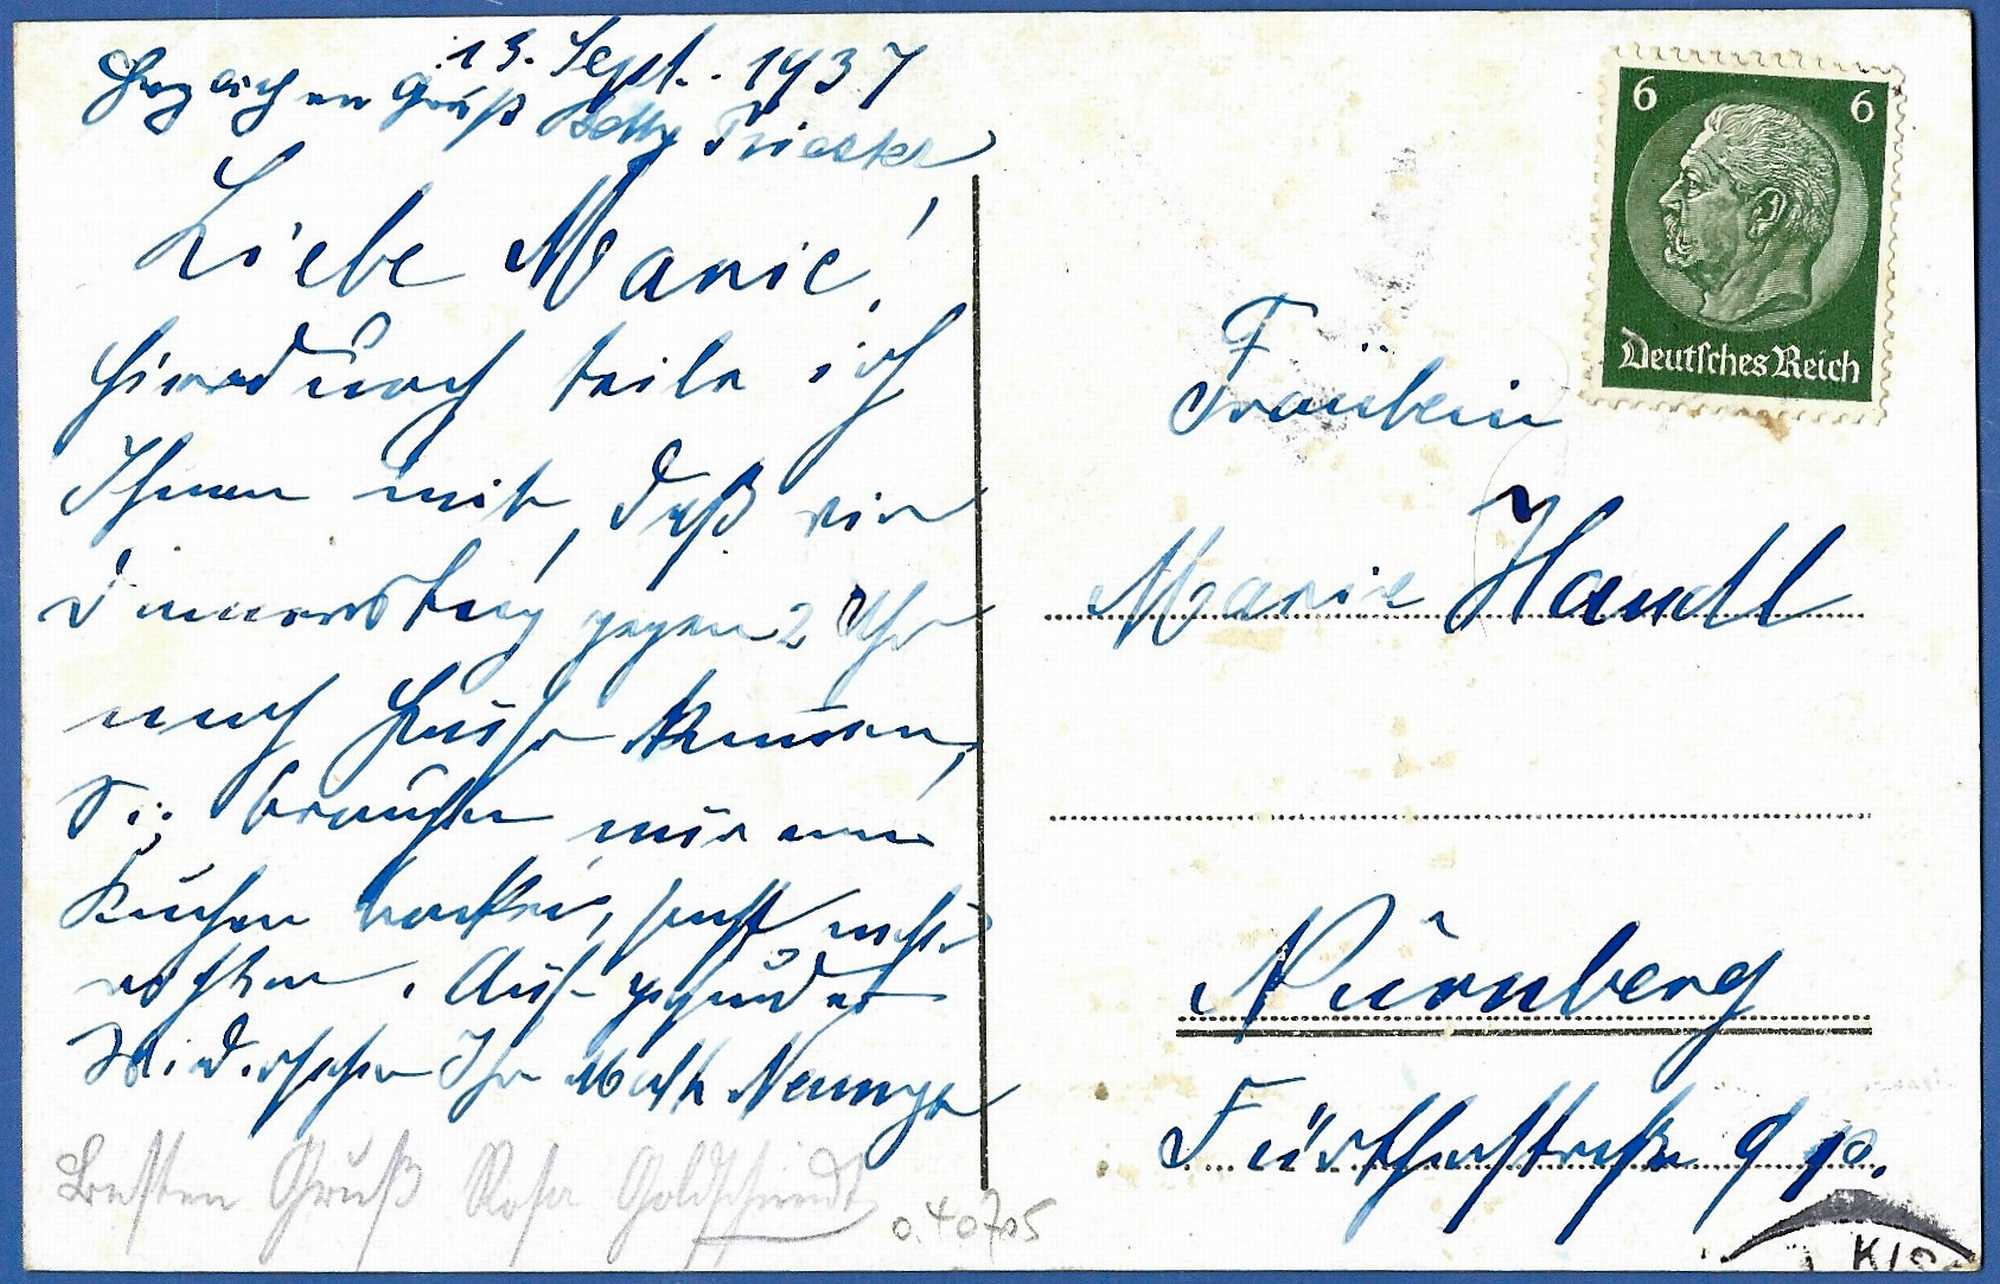 13. Sept. 1937
Herzlichen Gruß Betty Triester
Liebe Marie!
Hierdurch teile ich
Ihnen mit, daß wir
Donnerstag gegen 2 Uhr
nach Hause kommen,
Sie brauchen nur einen
Kuchen backen, sonst nichts
richten. Auf gesundes
Wiedersehen Ihr
Besten Gruß Rosa Goldschmidt
0.40705
6 6
Deutsches Reich
Fräulein
Marie Handl
Nürnberg
Fürtherstraße 9 p.
KIS